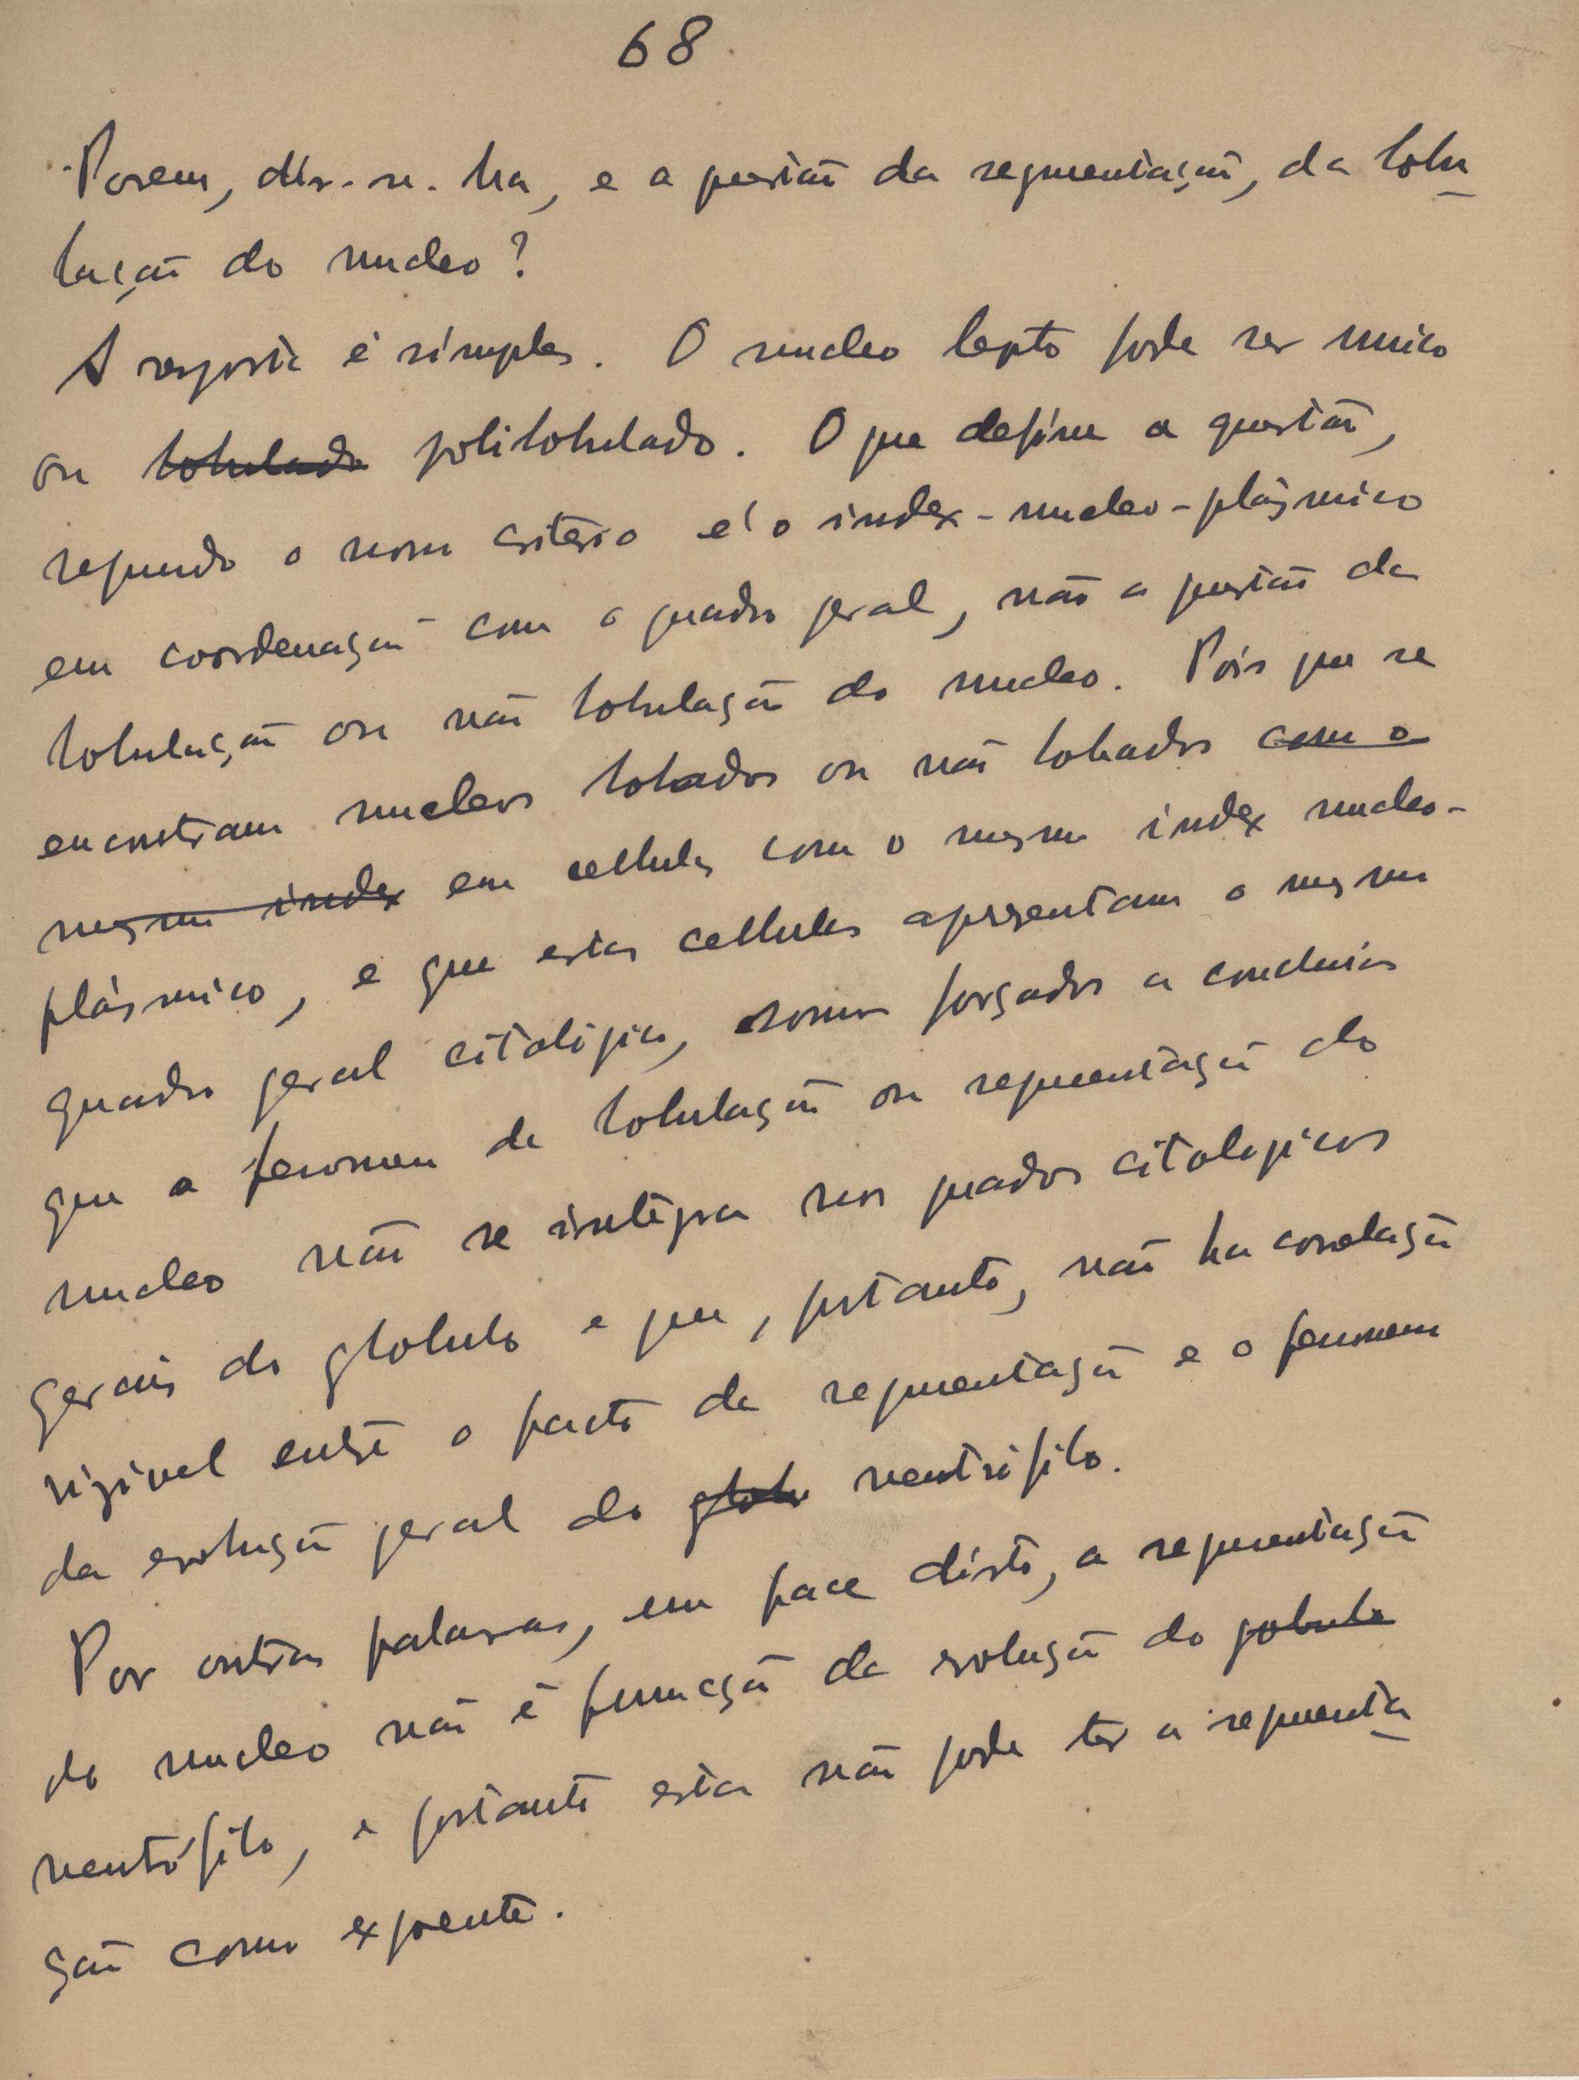 68
Porem, dir-se-ha, e a questão da segmentação, da lobu
lação do nucleo?
A resposta é simples. O nucleo lepto pode ser unico
ou lobulado polilobulado. O que define a questão,
segundo o nosso criterio é o index-nucleo-plásmico
em coordenação com o quadro geral, não a questão da
lobulação ou não lobulação do nucleo. Pois que se
encontram nucleos lobados ou não lobados com o
mesmo index em cellulas com o mesmo index nucleo-
plásmico, e que estas cellulas apresentam o mesmo
quadro geral citológico, somos forçados a concluir
que o fenomeno de lobulação ou segmentação do
nucleo não se integra nos quadros citologicos
gerais do globulo e que, portanto, não ha correlação
rigivel entre o facto da segmentação e o fenomeno
da evolução geral do globu neutrófilo.
Por outras palavras, em face disto, a segmentação
do nucleo não é funcção da evolução do gobulo
neutrófilo, e portanto esta não pode ter a segmenta
ção como expoente.